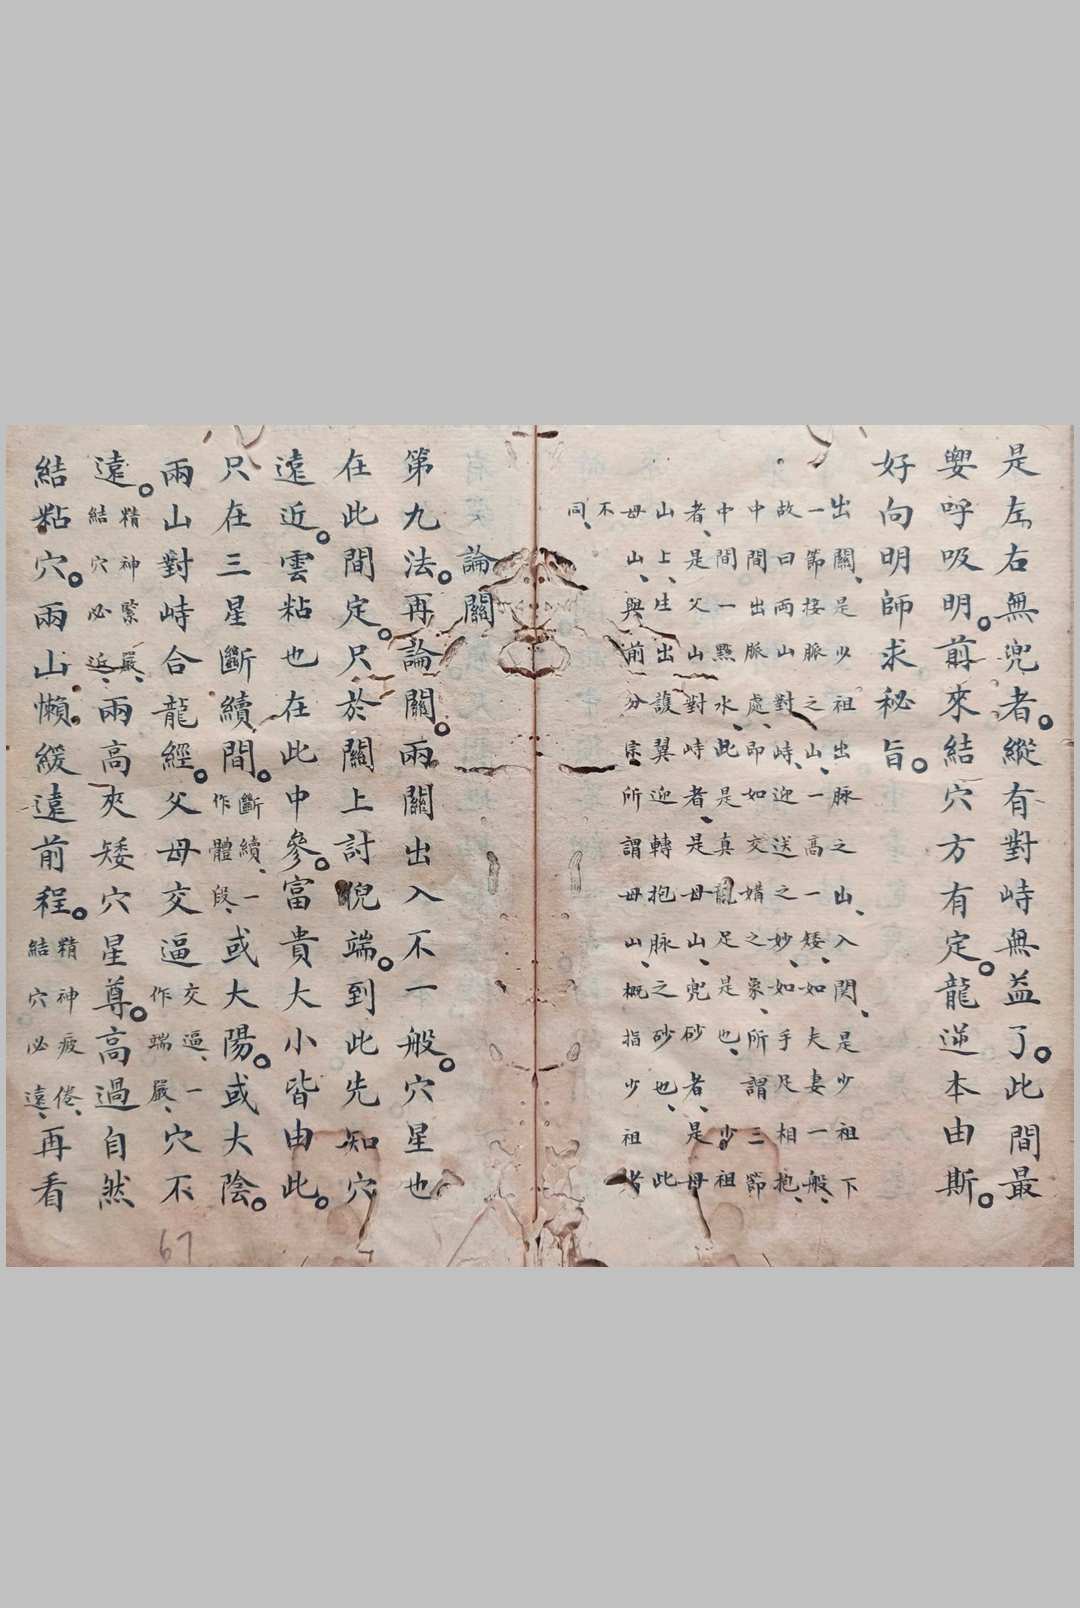 是左右無兜者。縱有對峙無益了。此間最
要呼吸明。前來結穴方有定。龍逆本由斯。
好向明師求秘旨。
出關、是少祖出脉之山、入関、是少祖下
一節接脈之山、一高一矮、如夫妻一般、
故曰兩山對峙、迎送之妙、如手足相抱、
中間出脈處、即如交媾之象、所謂三節
中間一點水、此是真龍足是也、少祖
者、是父山對峙者、是母山、兜砂者、是母
山上、生出護翼迎轉抱脉之砂也、此
母山、與前分宗所謂母山、概指少祖者
不
同、
論關
第九法。再論關。兩關出入不一般。穴星也
在此間定。只於關上討倪端。到此先知穴
遠近。雲粘也在此中參。富貴大小皆由此。
只在三星斷續間。斷續、一作體段、或大陽。或大陰。
兩山對峙合龍經。父母交逼交逼、一作端嚴、穴不
遠。精神緊嚴、結穴必近、兩高夾矮穴星尊。高過自然
結粘穴。兩山懶。緩遠前程。精神疲倦、結穴必遠、再看
67